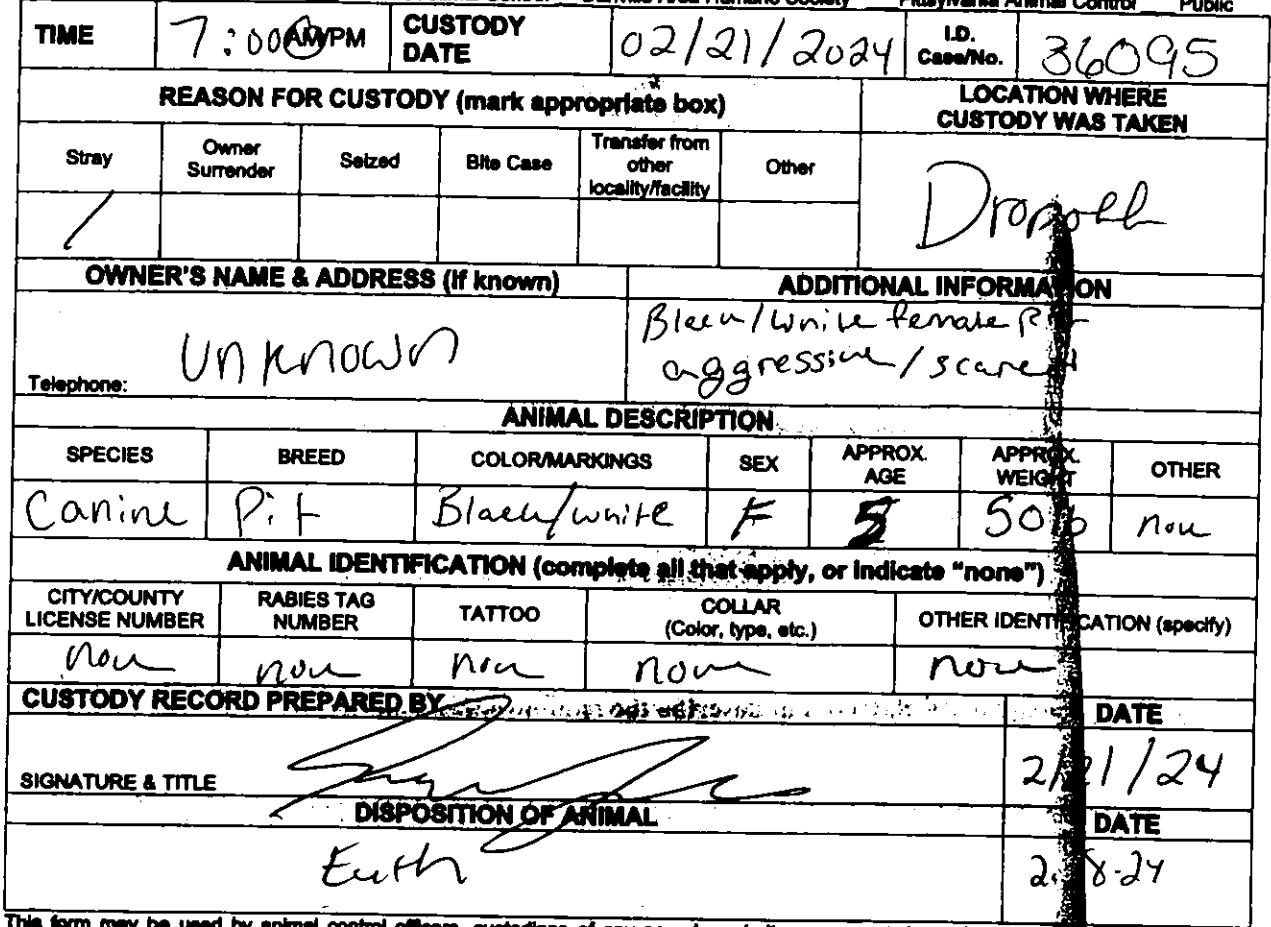 Danville Area Humane Society Pittsylvania Animal Control Public
TIME 7:00 AM/PM CUSTODY DATE 02/21/2024 I.D. Case/No. 36095
REASON FOR CUSTODY (mark appropriate box) LOCATION WHERE CUSTODY WAS TAKEN
Stray Owner Surrender Seized Bite Case Transfer from other locality/facility Other
/ Dropoff
OWNER'S NAME & ADDRESS (if known) ADDITIONAL INFORMATION
Black/white female Pit
Unknown aggressive/scared
Telephone:
ANIMAL DESCRIPTION
SPECIES BREED COLOR/MARKINGS SEX APPROX. AGE APPROX. WEIGHT OTHER
Canine Pit Black/white F 5 50lb none
ANIMAL IDENTIFICATION (complete all that apply, or indicate "none")
CITY/COUNTY LICENSE NUMBER RABIES TAG NUMBER TATTOO COLLAR (Color, type, etc.) OTHER IDENTIFICATION (specify)
none none none none none
CUSTODY RECORD PREPARED BY DATE
SIGNATURE & TITLE 2/21/24
DISPOSITION OF ANIMAL DATE
Euth
This form may be used by animal control officers, custodians of any